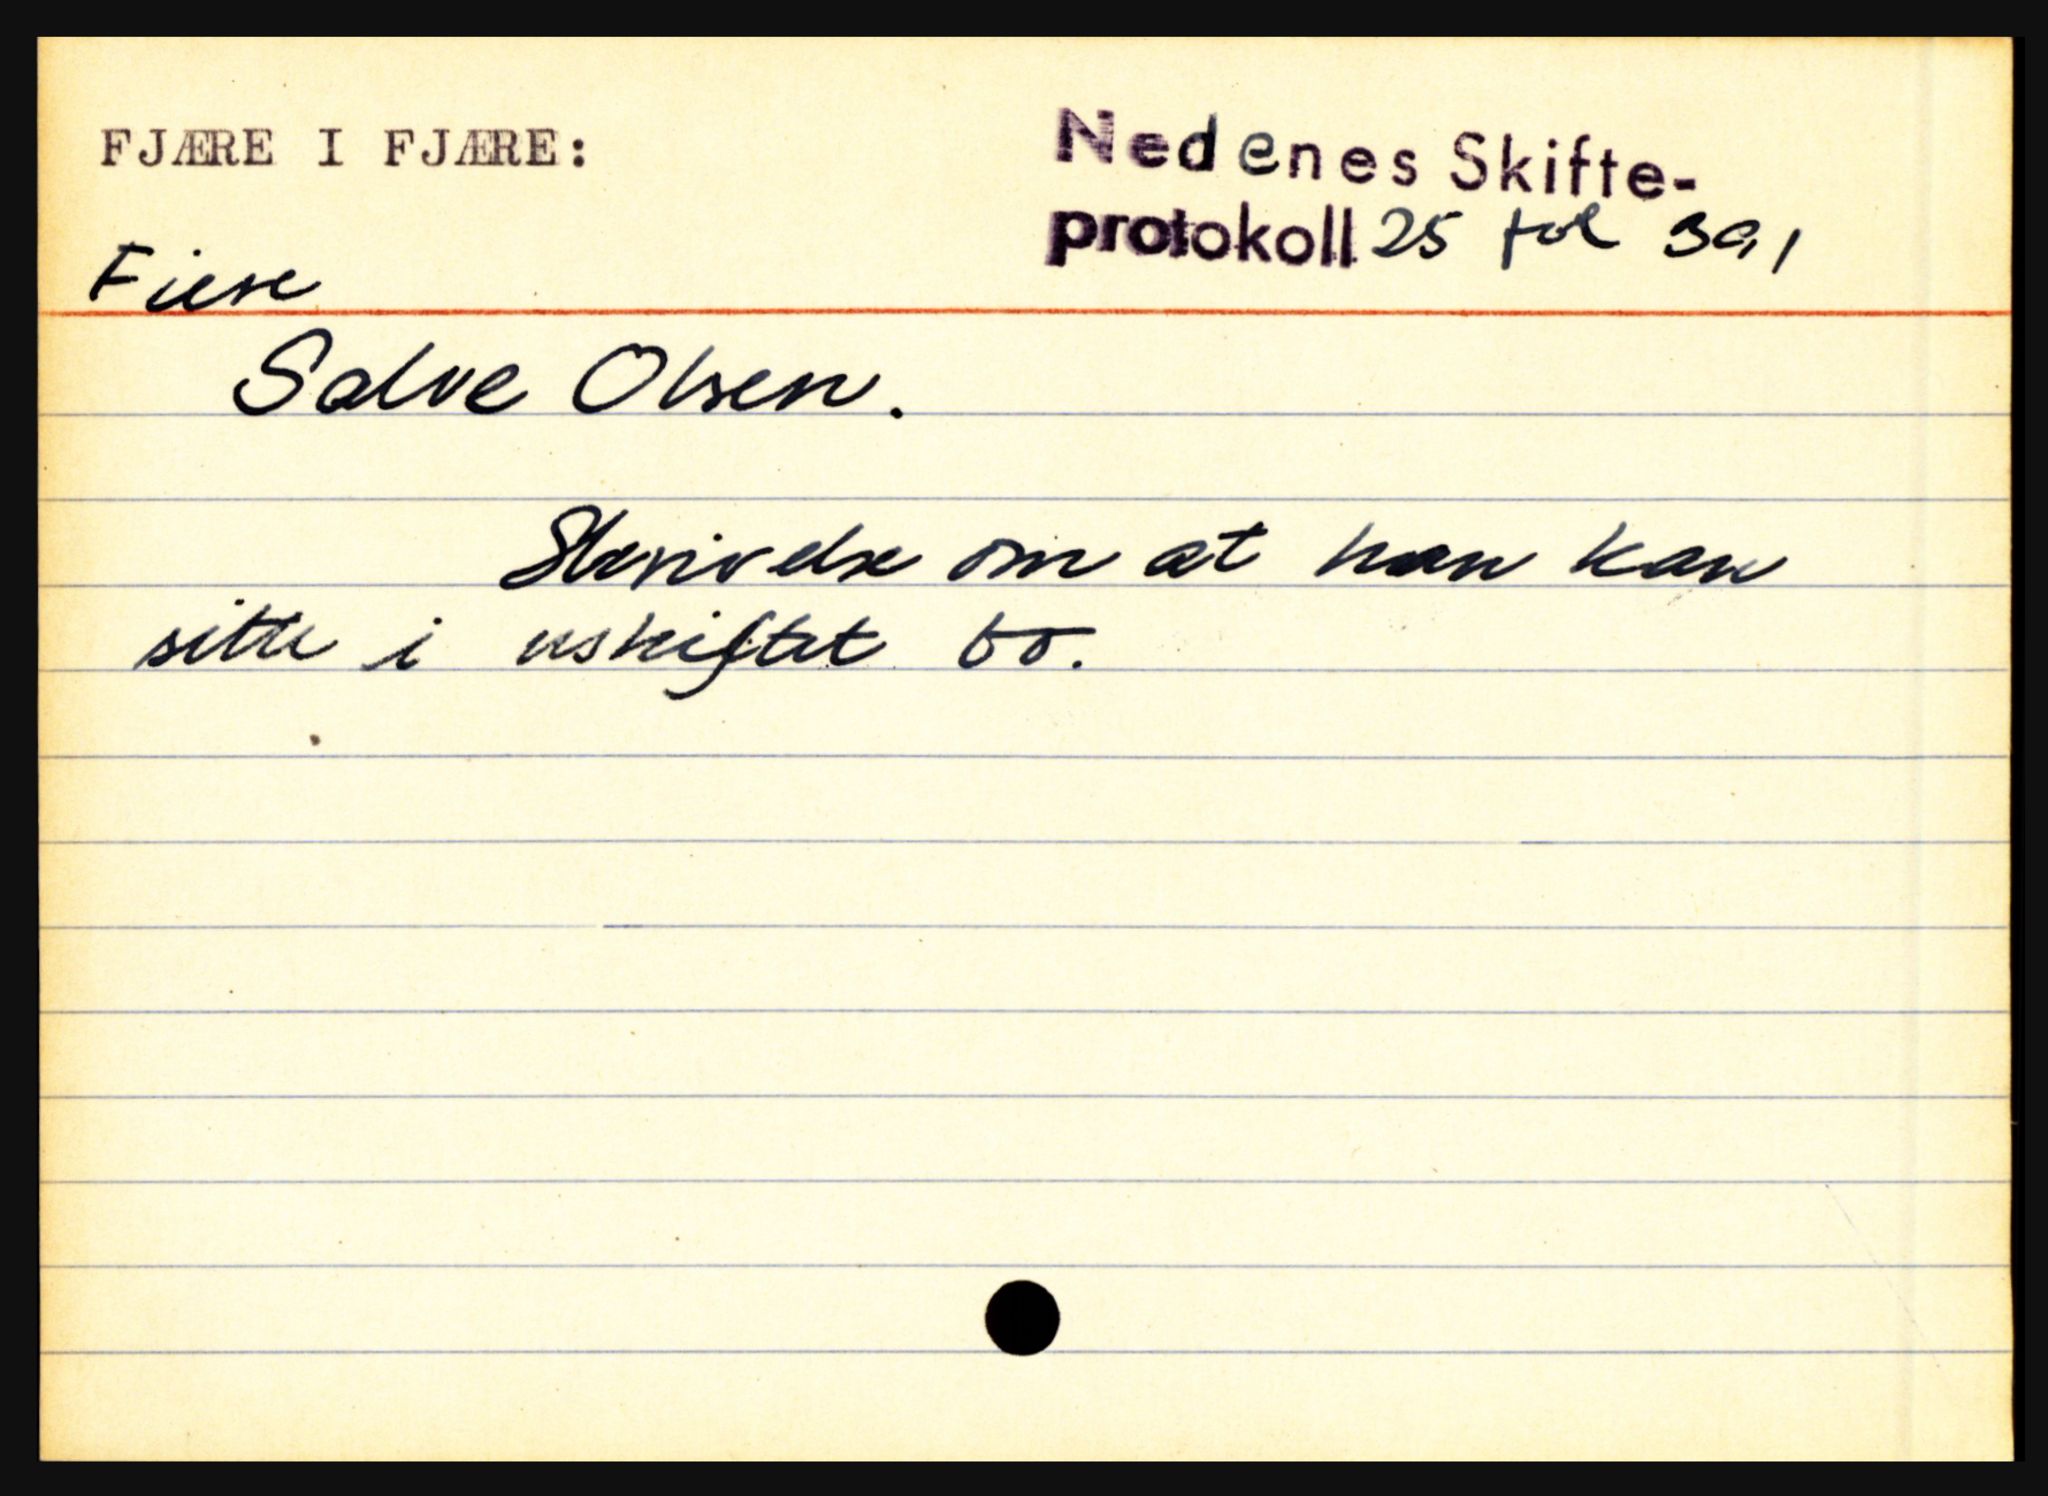 FJÆRE I FJÆRE:
Nedenes Skifte-
protokoll 25 fol 39,
Fiere
Salve Olsen.
Skrivelse om at han kan
sitte i uskiftet bo.